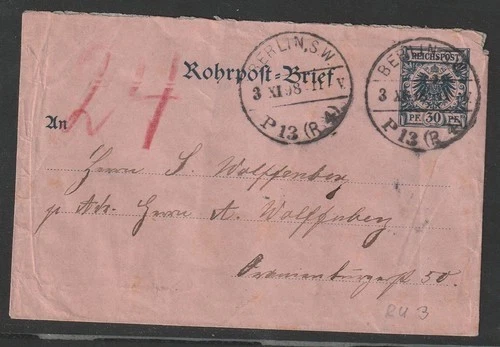 BERLIN, S.W.
3 XI 98. 11 V.
P 13 (R. 4).
BERLIN
3 XI
P 13 (R. 4)
REICHSPOST
PF. 30 PF.
Rohrpost-Brief
24
An
Herrn S. Wolffenberg
p Adr. Herrn A. Wolffenberg
Oranienburgerst 50.
RU 3